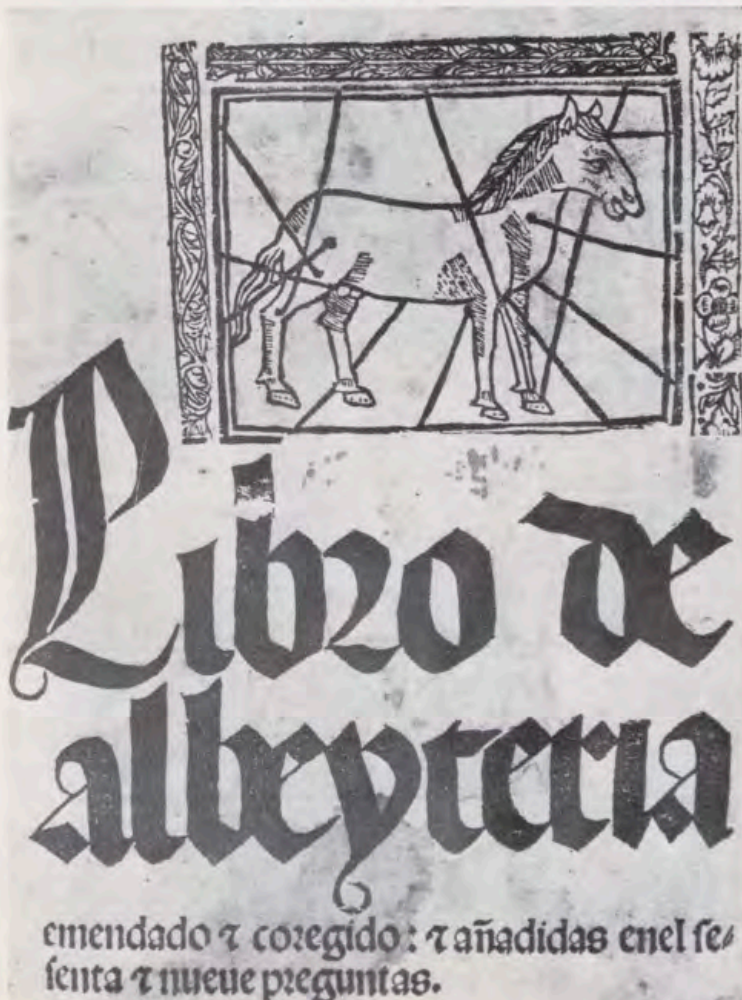 Libro de
albeyteria
emendado ⁊ coregido: ⁊ añadidas enel se⸗
senta ⁊ nueue preguntas.